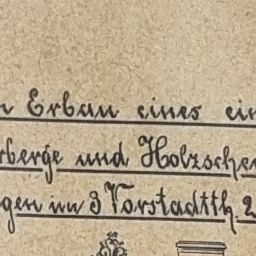 n Erbau eines ein
rberge und Holzscher
gen im 3 Vorstadtth. 2